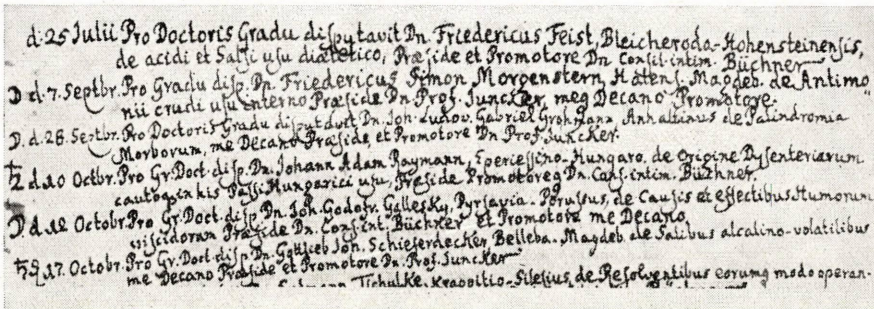 d. 25 Julii Pro Doctoris Gradu disputavit Dn. Friedericus Feist, Bleicheroda-Hohensteinensis,
de acidi et Salsi usu diaetetico, Præside et Promotore Dn Consil. intim. Büchner
D d. 7. Septbr. Pro Gradu disp. Dn. Friedericus Simon Morgenstern, Magdeb. de Antimo
nii crudi usu interno Præside Dn. Prof. Juncker, meq Decano Promotore.
D. d. 28. Septbr. Pro Doctoris Gradu disputavit Dn. Joh. Ludov. Gabriel Anhaltinus de Palindromia
Morborum, me Decano Præside, et Promotore Dn Prof Juncker.
d. 10 Octbr. Pro Gr. Doct. disp. Dn. Johann Adam Raymann, Eperiessino-Hungaro. de Origine Dysenteriarum
Hungarici usu, Præside Promotoreq Dn. Cons. intim. Büchner
D d. 12 Octobr. Pro Gr. Doct. disp. Dn. Joh. Godofr. Gallesky, de Causis et effectibus Humorum
viscidorum Præside Dn. Cons. int. Büchner et Promotore me Decano.
17. Octobr. Pro Gr. Doct. disp. Dn. Gottlieb Joh. Schieferdecker, Belleba-Magdeb. de Salibus alcalino-volatilibus
me Decano Præside et Promotore Dn. Prof. Juncker
Tschulke, Silesius, de Resolventibus eorumq modo operan-